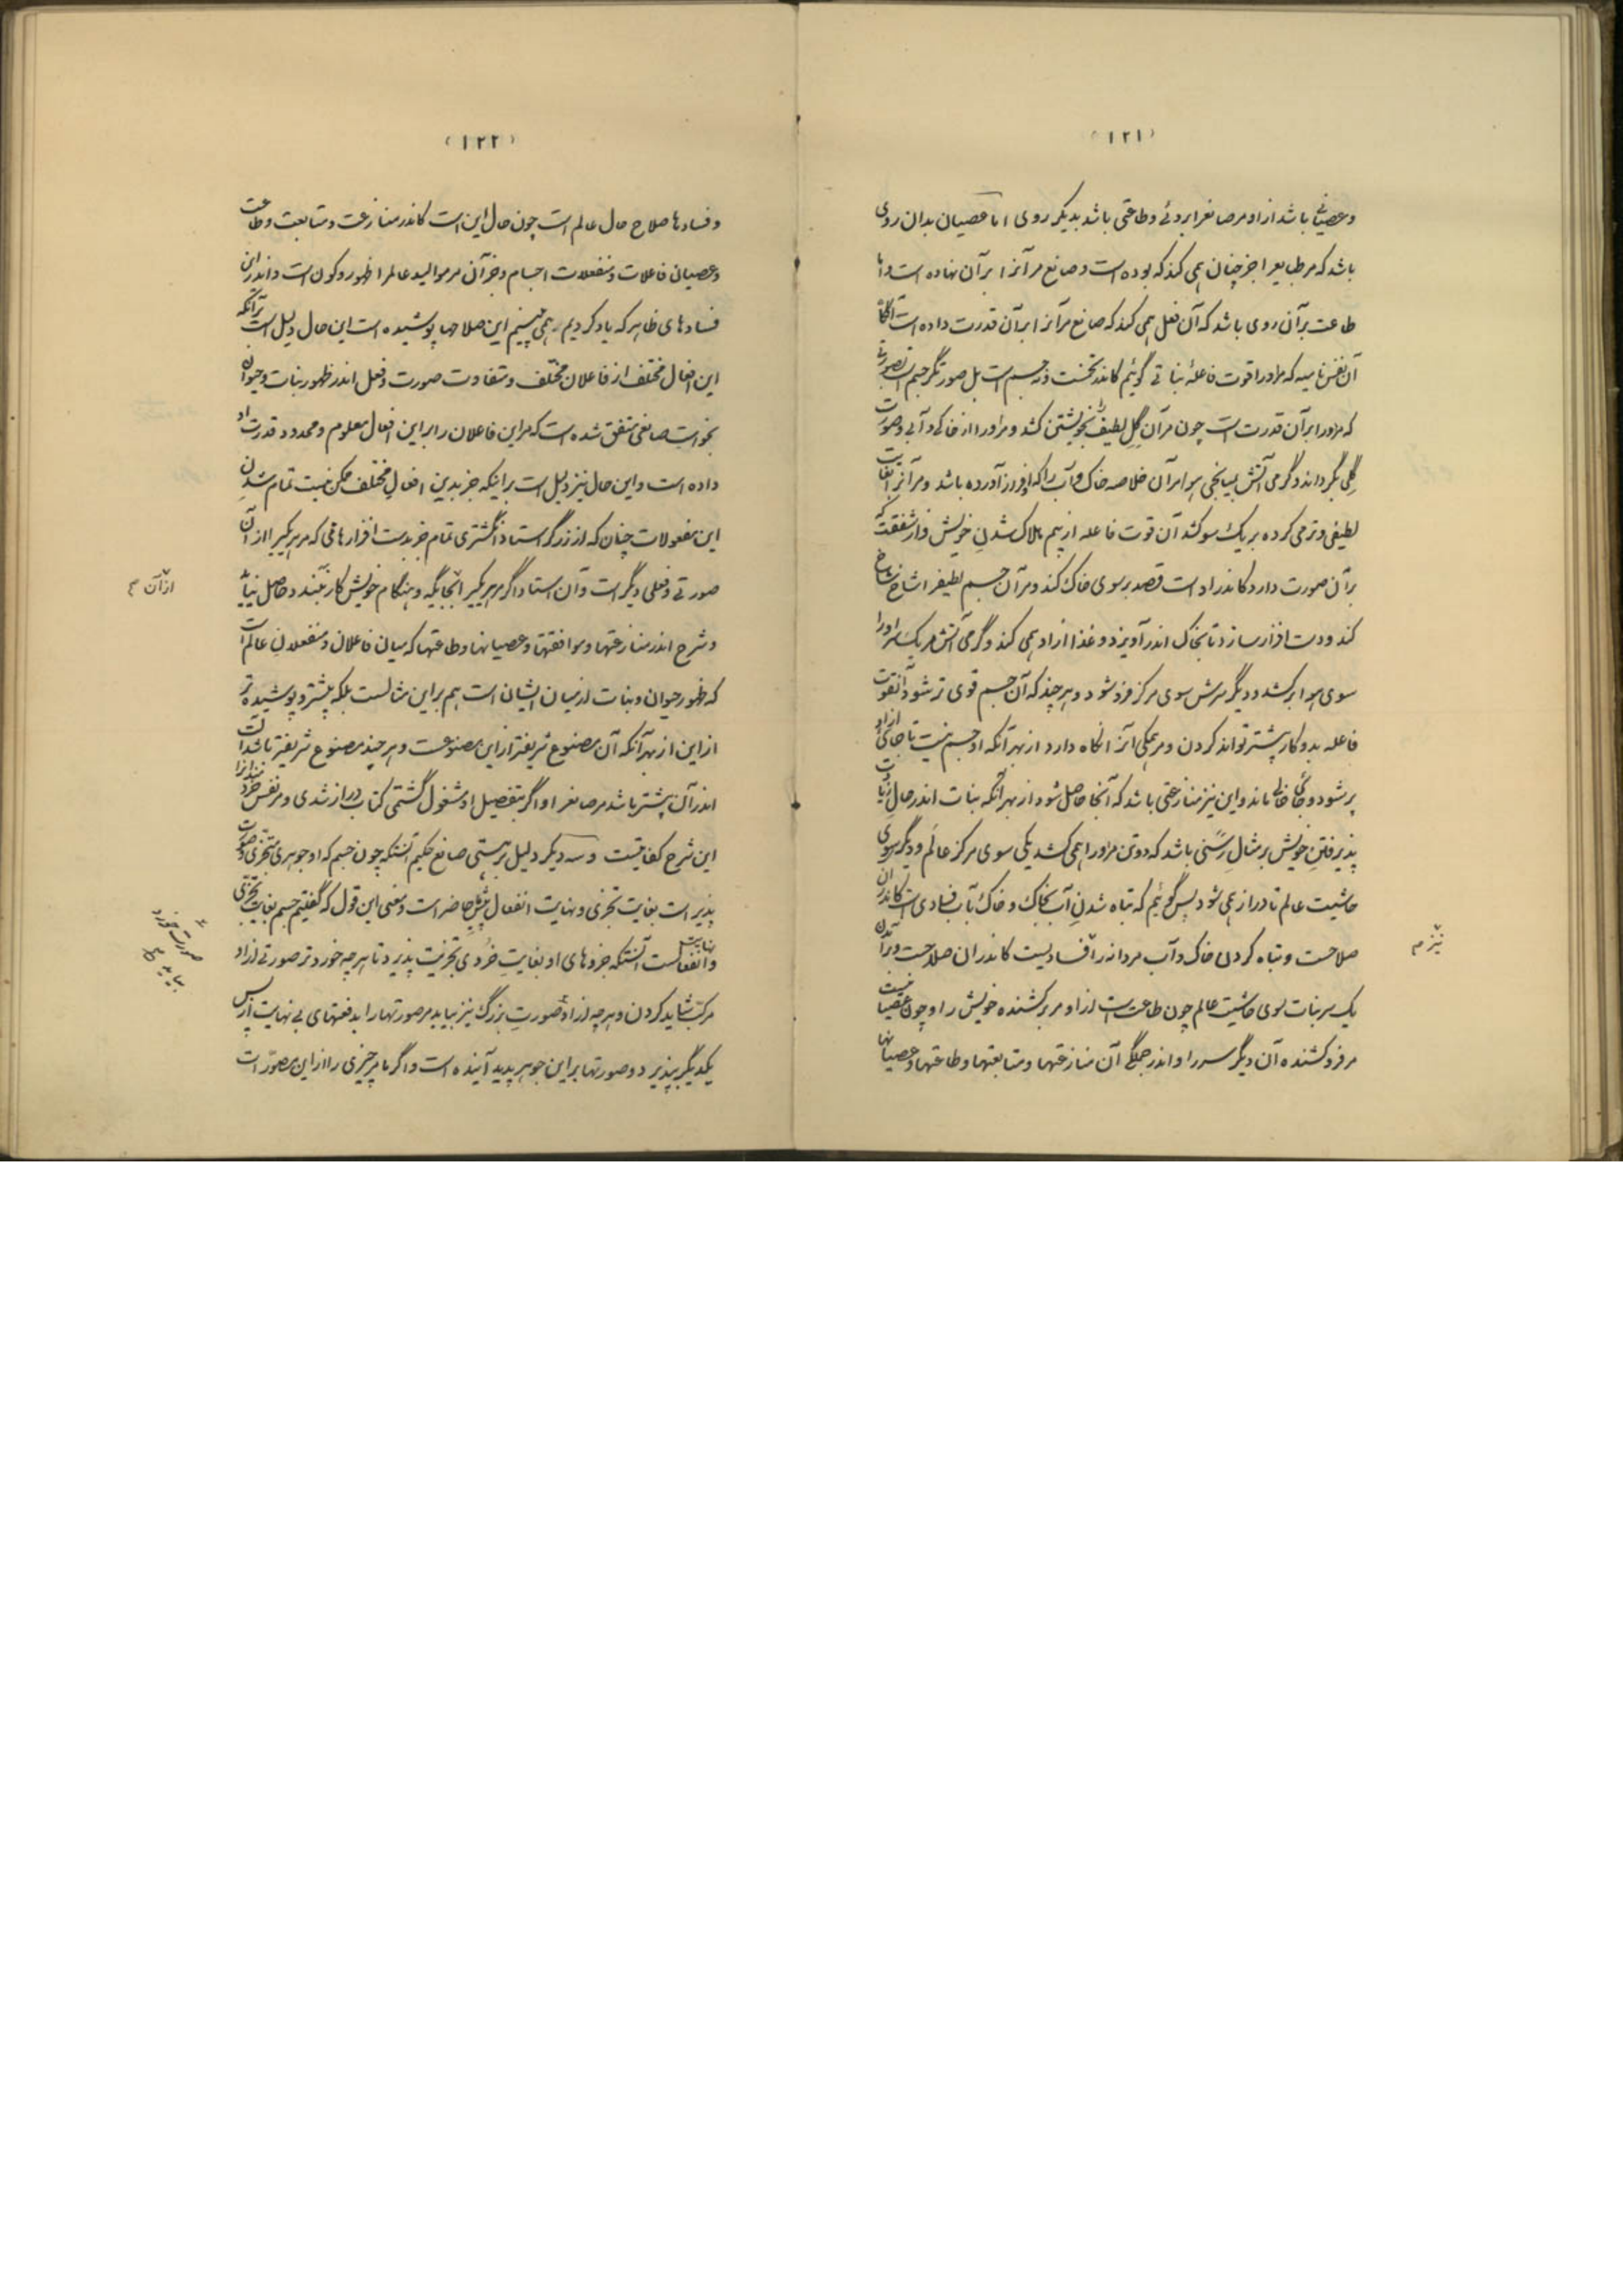 (۱۲۱)
وعصیانی باشد ازاو مر صانعرا بروئی وطاعتی باشد بدیگر روی اما عصیان بدان روی
باشد که مر طبایعرا جز چنان همی کند که بوده است وصانع مر آنرا بر آن نهاده است واما
طاعت بر آن روی باشد که آن فعل همی کند که صانع مر آنرا بر آن قدرت داده است آنگاه
آن نفس نامیه که مر اورا قوت فاعلۀ نباتی گوئیم کاندر تخمست ونه جسم است بل صورتگر جسم است بصورتی
که مر اورا بر آن قدرت است چون مر آن گِل لطیف را بخویشتن کشد ومر اورا از خاکی وآبی وصورت
گلی بگرداند وگرمی آتش بمیانجی هوا مر آن خلاصه خاک وآب را که او فراز آورده باشد ومر آنرا بغایت
لطیفی ونرمی کرده بر یک سو کشد آن قوت فاعله از بیم هلاک شدنِ خویش واز شفقت که
بر آن صورت دارد کاندر اوست قصد بر سوی خاک کند ومر آن جسم لطیفرا شاخ شاخ
کند ودست افزار سازد تا بخاک اندر آویزد وغذا ازاو همی کند وگرمی آتش مر یک سر اورا
سوی هوا بر کشد ودیگر سرش سوی مرکز فرو شود وهر چند که آن جسم قوی تر شود آن قوت
فاعله بدو کار بیشتر تواند کردن ومر همگی آنرا نگاه دارد از بهر آنکه او جسم نیست تا جائی ازاو
پر شود وجائی خالی ماند واین نیز منازعتی باشد که آنجا حاصل شود از بهر آنکه نبات اندر حال زیادت
پذیرفتنِ خویش بر مثالِ رسَنی باشد که دو تن مر اورا همی کشد یکی سوی مرکز عالَم ودیگر سوی
حاشیت عالم تا دراز همی شود پس گوئیم که تباه شدنِ آب بخاک وخاک بآب فسادی است کاندر آن
صلاحست وتباه کردن خاک وآب مر دانه را فسادیست کاندر ان صلاحست وبر آمدن
یک سر نبات سوی حاشیت عالم چون طاعت است ازاو مر بر کشنده خویش را وچون عصیانست
مر فرو کشنده آن دیگر سر را واندر جملگی آن منازعتها ومتابعتها وطاعتها وعصیانها
نیز م
(۱۲۲)
وفسادها صلاح حال عالم است چون حال این است کاندر منازعت ومتابعت وطاعت
وعصیان فاعلات ومنفعلات اجسام وجز آن مر موالید عالمرا ظهور وکون است واندر این
فسادهای ظاهر که یاد کردیم همی بینیم این صلاحها پوشیده است این حال دلیل است بر آنکه
این افعال مختلف از فاعلان مختلف ومتفاوت صورت وفعل اندر ظهور نبات وحیوان
بخواست صانعی متفق شده است که مر این فاعلان را بر این افعال معلوم ومحدود قدرت او
داده است واین حال نیز دلیل است بر اینکه جز بدین افعالِ مختلف ممکن نیست تمام شدنِ
این مفعولات چنان که از زرگر استاد انگشتری تمام جز بدست افزارهائی که مر هر یکیرا از آن
صورتی وفعلی دیگر است وآن استاد اگر مر هر یکیرا بجایگه وهنگام خویش کار نبندد حاصل نیاید
وشرح اندر منازعتها وموافقتها وعصیانها وطاعتها که میان فاعلان ومنفعلان عالم است
که ظهور حیوان ونبات از میان ایشان است هم بر این مثالست بلکه بیشتر وپوشیده تر
از این از بهر آنکه آن مصنوع شریفتر از این مصنوعست وهر چند مصنوع شریفتر باشد آلت
اندر آن بیشتر باشد مر صانعرا واگر بتفصیل او مشغول گشتمی کتاب دراز شدی ومر نفس خردمندانرا
این شرح کفایتست وسه دیگر دلیل بر هستی صانع حکیم آنستکه چون جسم که او جوهری متجزی وصورت
پذیر است بغایت تجزی ونهایت انفعال پیش ما حاضر است ومعنی این قول که گفتیم جسم بغایت تجزی
ونهایت انفعالست آنستکه جزوهای او بغایتِ خُردی تجزیت پذیرد تا هر چه خورد تر صورتی ازاو
مرکب شاید کردن وهر چه ازاو صورتِ بزرگ نیز بیاید مر صورتهارا بدفعتهای بی نهایت از پس
یکدیگر بپذیرد وصورتها بر این جوهر پدید آینده است واگر ما مر چیزی را از این مصورات
از آن
صورت خورد
بیاید